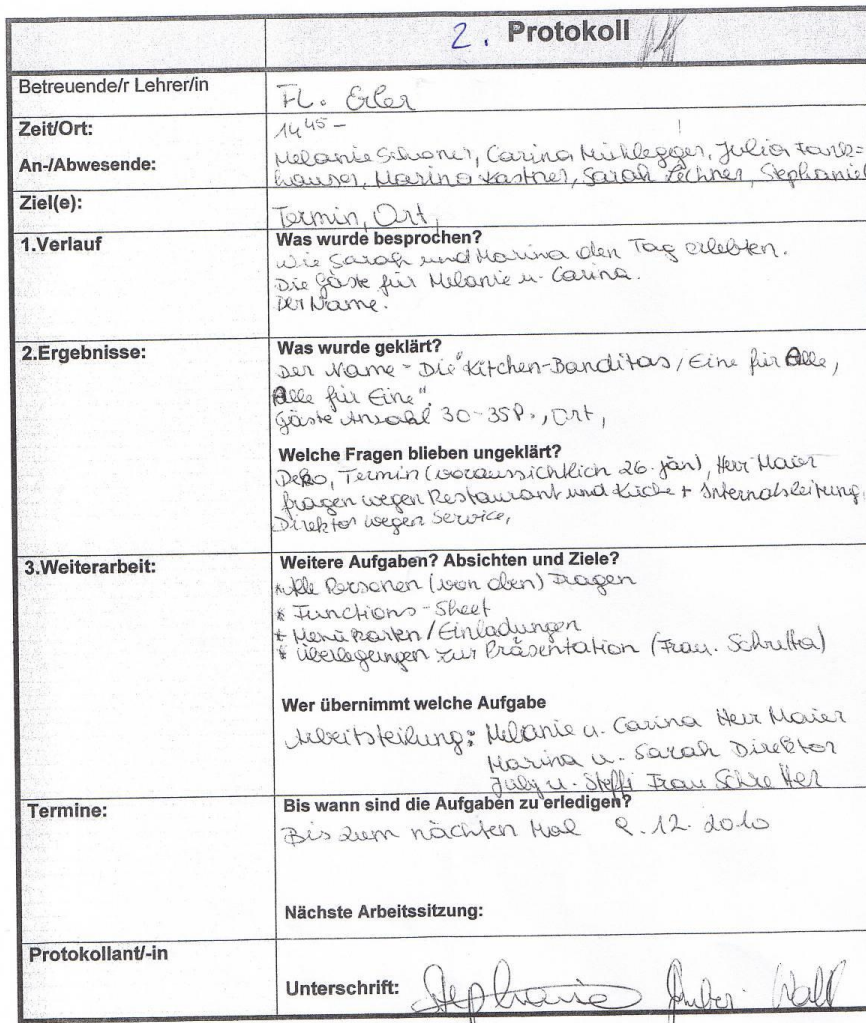 2. Protokoll
Betreuende/r Lehrer/in
FL. Erler
Zeit/Ort:
14 45 -
An-/Abwesende:
Melanie Schoner, Carina Mühlegger, Julia
hauser, Marina Kastner, Sarah Lechner, Stephanie
Ziel(e):
Termin, Ort,
1.Verlauf
Was wurde besprochen?
Wie Sarah und Marina den Tag erlebten.
Die Gäste für Melanie u. Carina.
Der Name.
2.Ergebnisse:
Was wurde geklärt?
Der Name - Die "Kitchen-Banditas / Eine für Alle,
Alle für Eine".
Gäste Anzahl 30-35P., Ort,
Welche Fragen blieben ungeklärt?
Deko, Termin (voraussichtlich 26. jän), Herr Maier
fragen wegen Restaurant und Küche + Internatsleitung,
Direktor wegen Service,
3.Weiterarbeit:
Weitere Aufgaben? Absichten und Ziele?
* Alle Personen (von oben) Fragen
* Functions-Sheet
* Menükarten/Einladungen
* Überlegungen zur Präsentation (Frau. Schretter)
Wer übernimmt welche Aufgabe
Arbeitsteilung: Melanie u. Carina Herr Maier
Marina u. Sarah Direktor
July u. Steffi Frau Schretter
Termine:
Bis wann sind die Aufgaben zu erledigen?
Bis zum nächten Mal 9. 12. 2010
Nächste Arbeitssitzung:
Protokollant/-in
Unterschrift: Stephanie